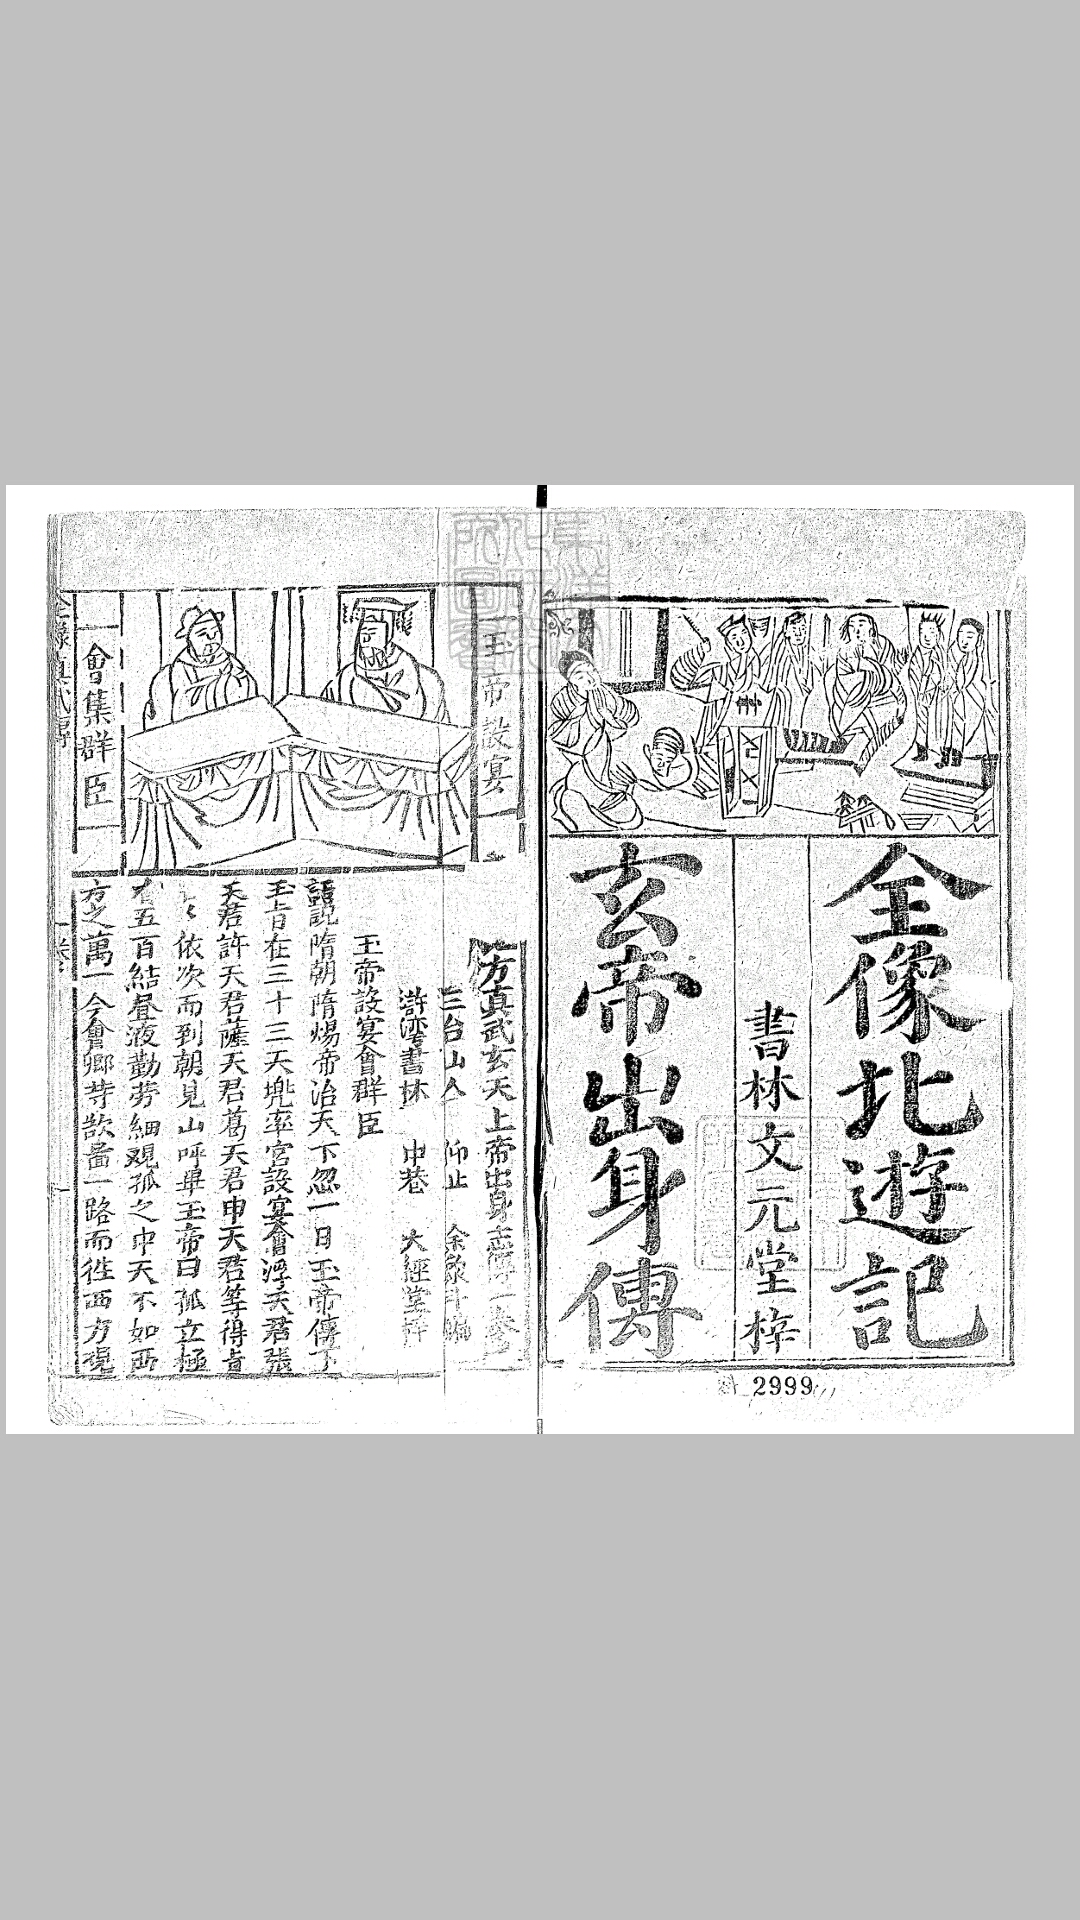 全像北遊記
書林文元堂梓
玄帝出身傳
2999
玉帝設宴
會集群臣
方真武玄天上帝出身志傳一卷
三台山人 仰止 余象斗編
滸湾書林 中巷 大經堂梓
玉帝設宴會群臣
話說隋朝隋煬帝治天下忽一日玉帝傳下
玉旨在三十三天兠率宮設宴會浮天君張
天君許天君薩天君葛天君申天君等得旨
依次而到朝見山呼畢玉帝曰孤立極
有五百結昼液勤劳細观孤之中天不如西
方之萬一今會卿等歆啚一路而徃西方視